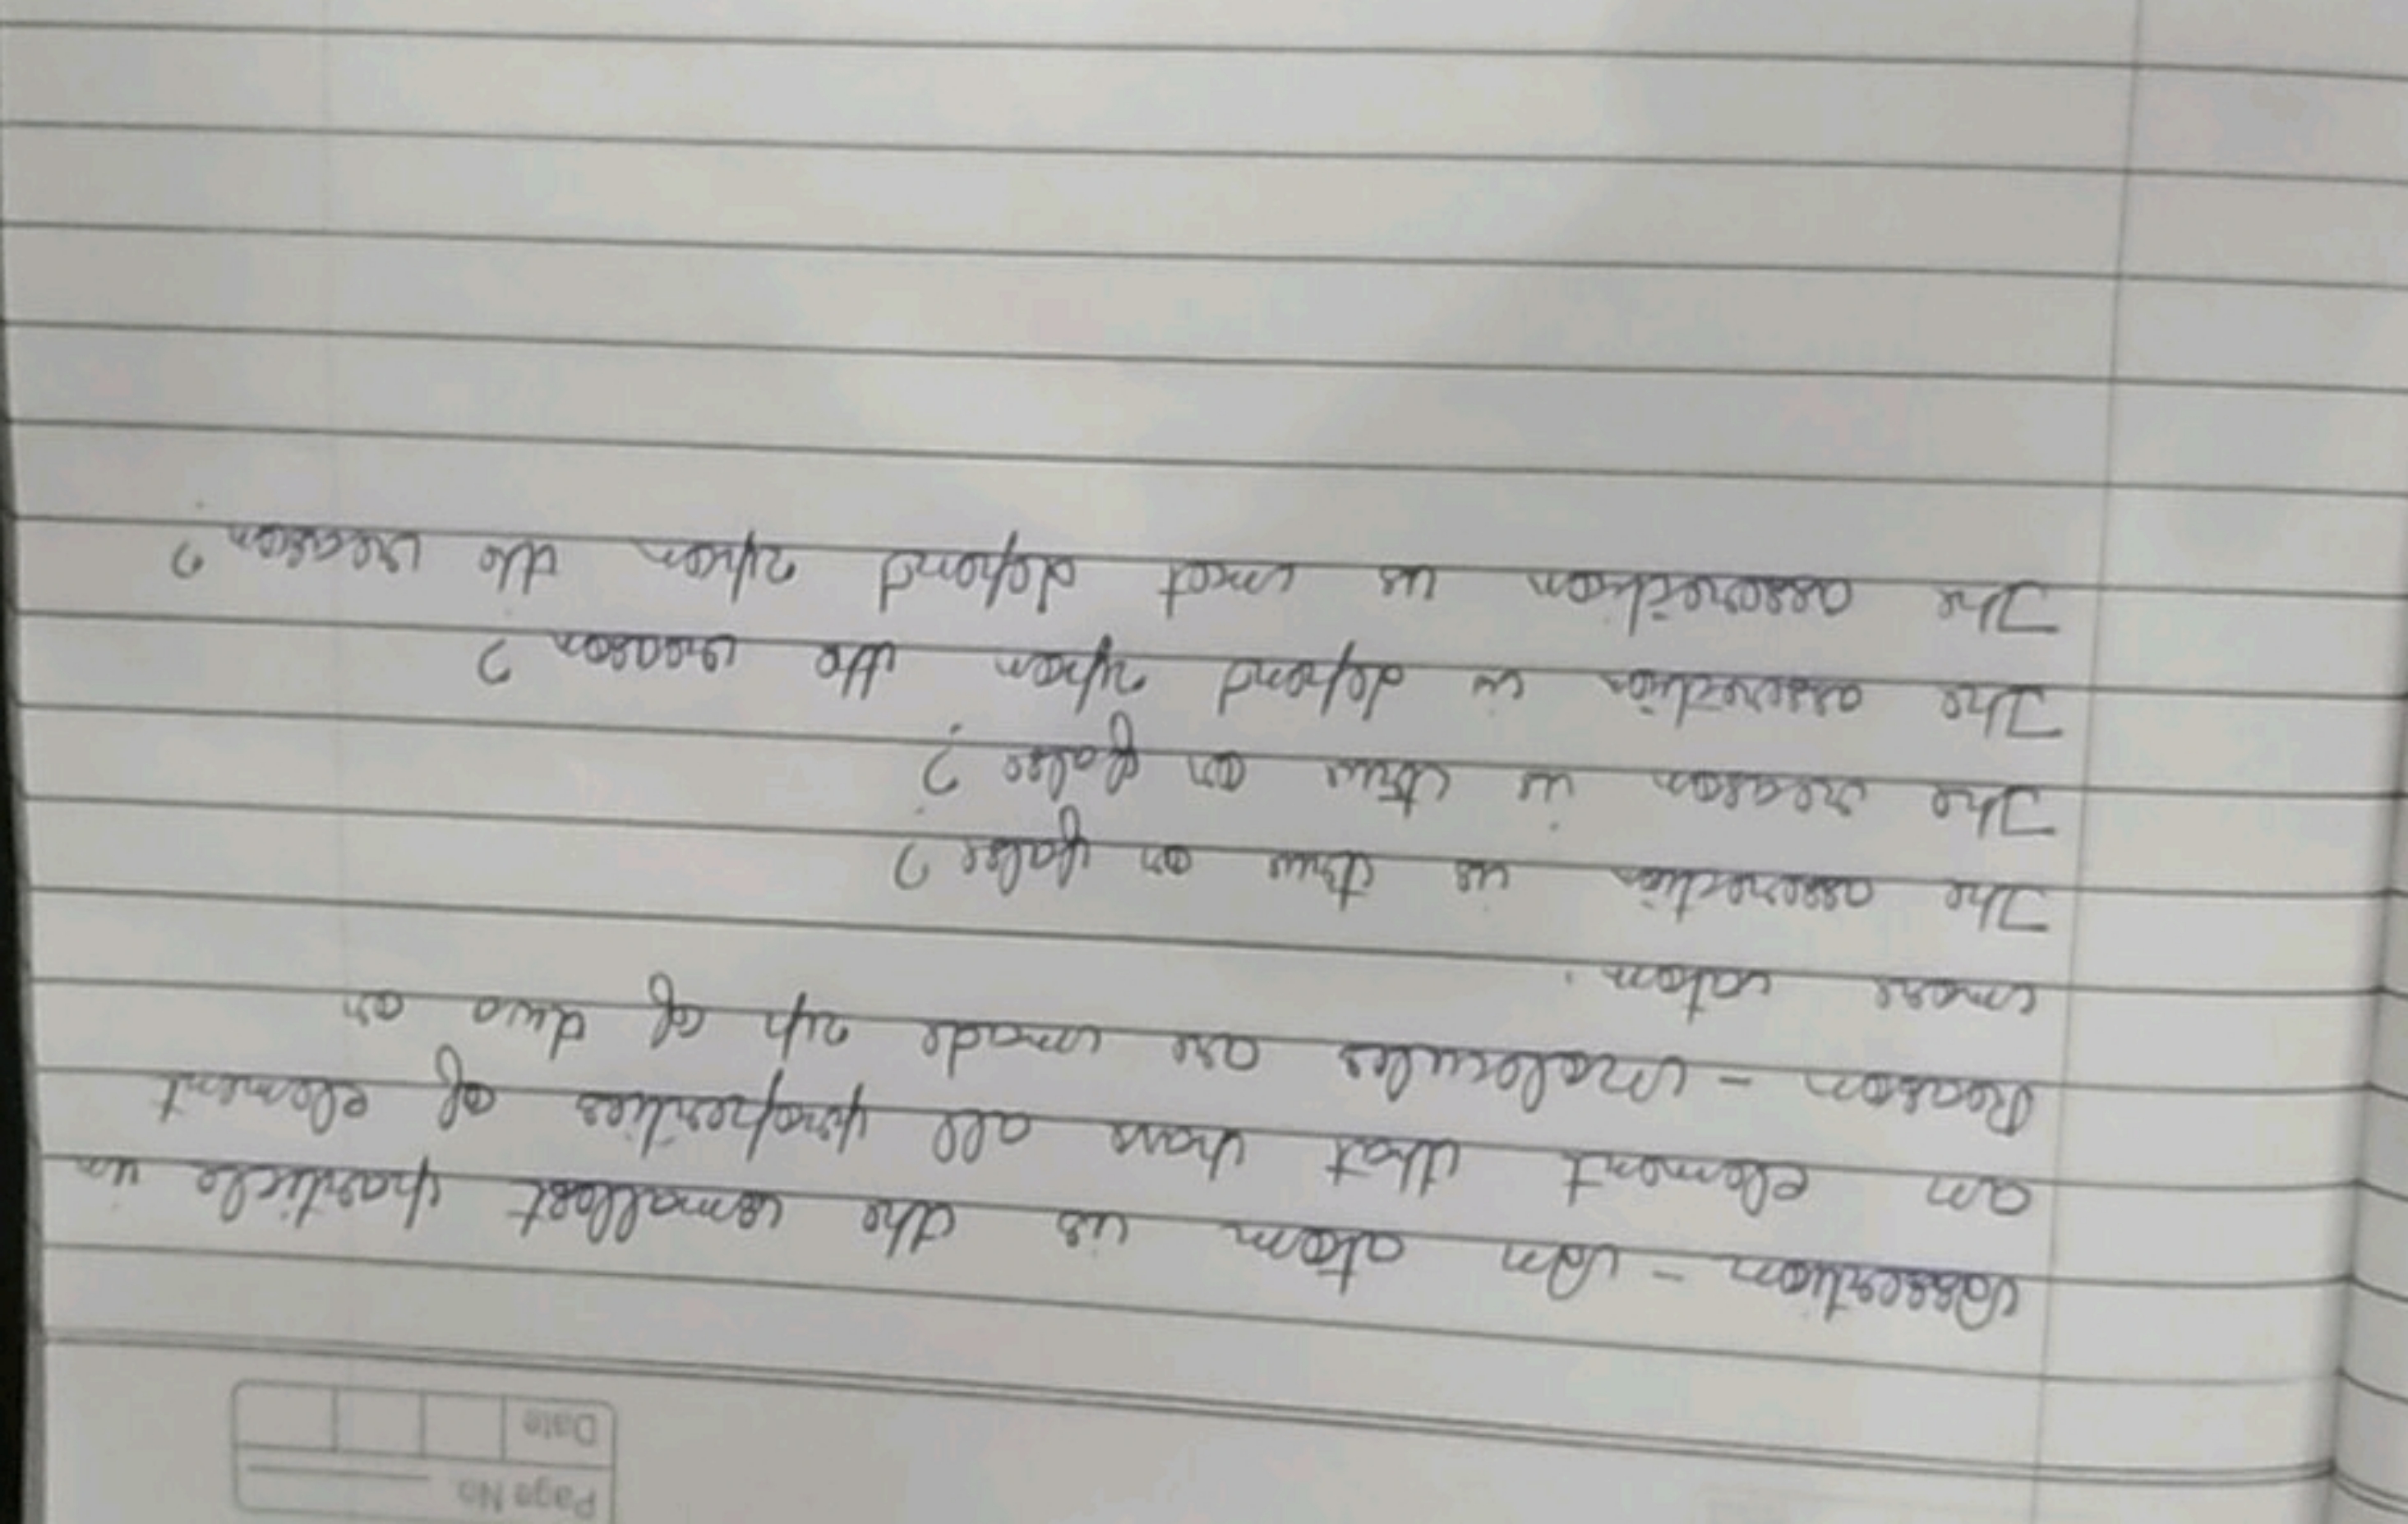 Page No
Date
Assertion - An atom is the smallest particle in
an element that has all properties of element
Reason - Molecules are made up of two or
more atom.
The asserection is true or false?
The reason is true or false?
The asserection is depend upon the reason?
The asserection is not depend upon the reason?